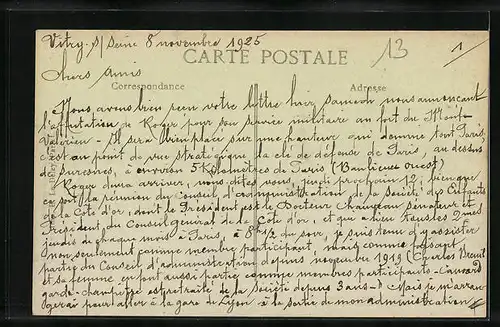 Vitry s/ Seine 8 novembre 1925
13
1
CARTE POSTALE
Chers amis
Correspondance
Adresse
Nous avons bien reçu votre lettre hier samedi nous annonçant
l'affectation de Roger pour son service militaire au fort du Mont
Valérien - Il sera bien placé sur une hauteur qui domine tout Paris
c'est au point de vue stratégique la clé de défense de Paris, au dessus
de Suresnes, à environ 5 Kilomètres de Paris (Banlieue ouest)
Roger devra arriver, nous dites vous, jeudi prochain 12, bien que
ce soit la réunion du Conseil d'administration de la Société des Enfants
de la Côte d'or, dont le Président est le Docteur Chauveau Sénateur et
Président du Conseil Général de la Côte d'or, et qui a lieu tous les 2mes
jeudis de chaque mois à Paris, à 8h ½ du soir, je suis tenu d'y assister
non seulement comme membre participant, mais comme faisant
partie du Conseil d'administration depuis novembre 1919 (Charles Breuil
et sa femme en font aussi partie comme membres participants
garde-champêtre est retraité de la Société depuis 3 ans - Mais je m'arran
gerai pour aller à la gare de Lyon à la sortie de mon administration